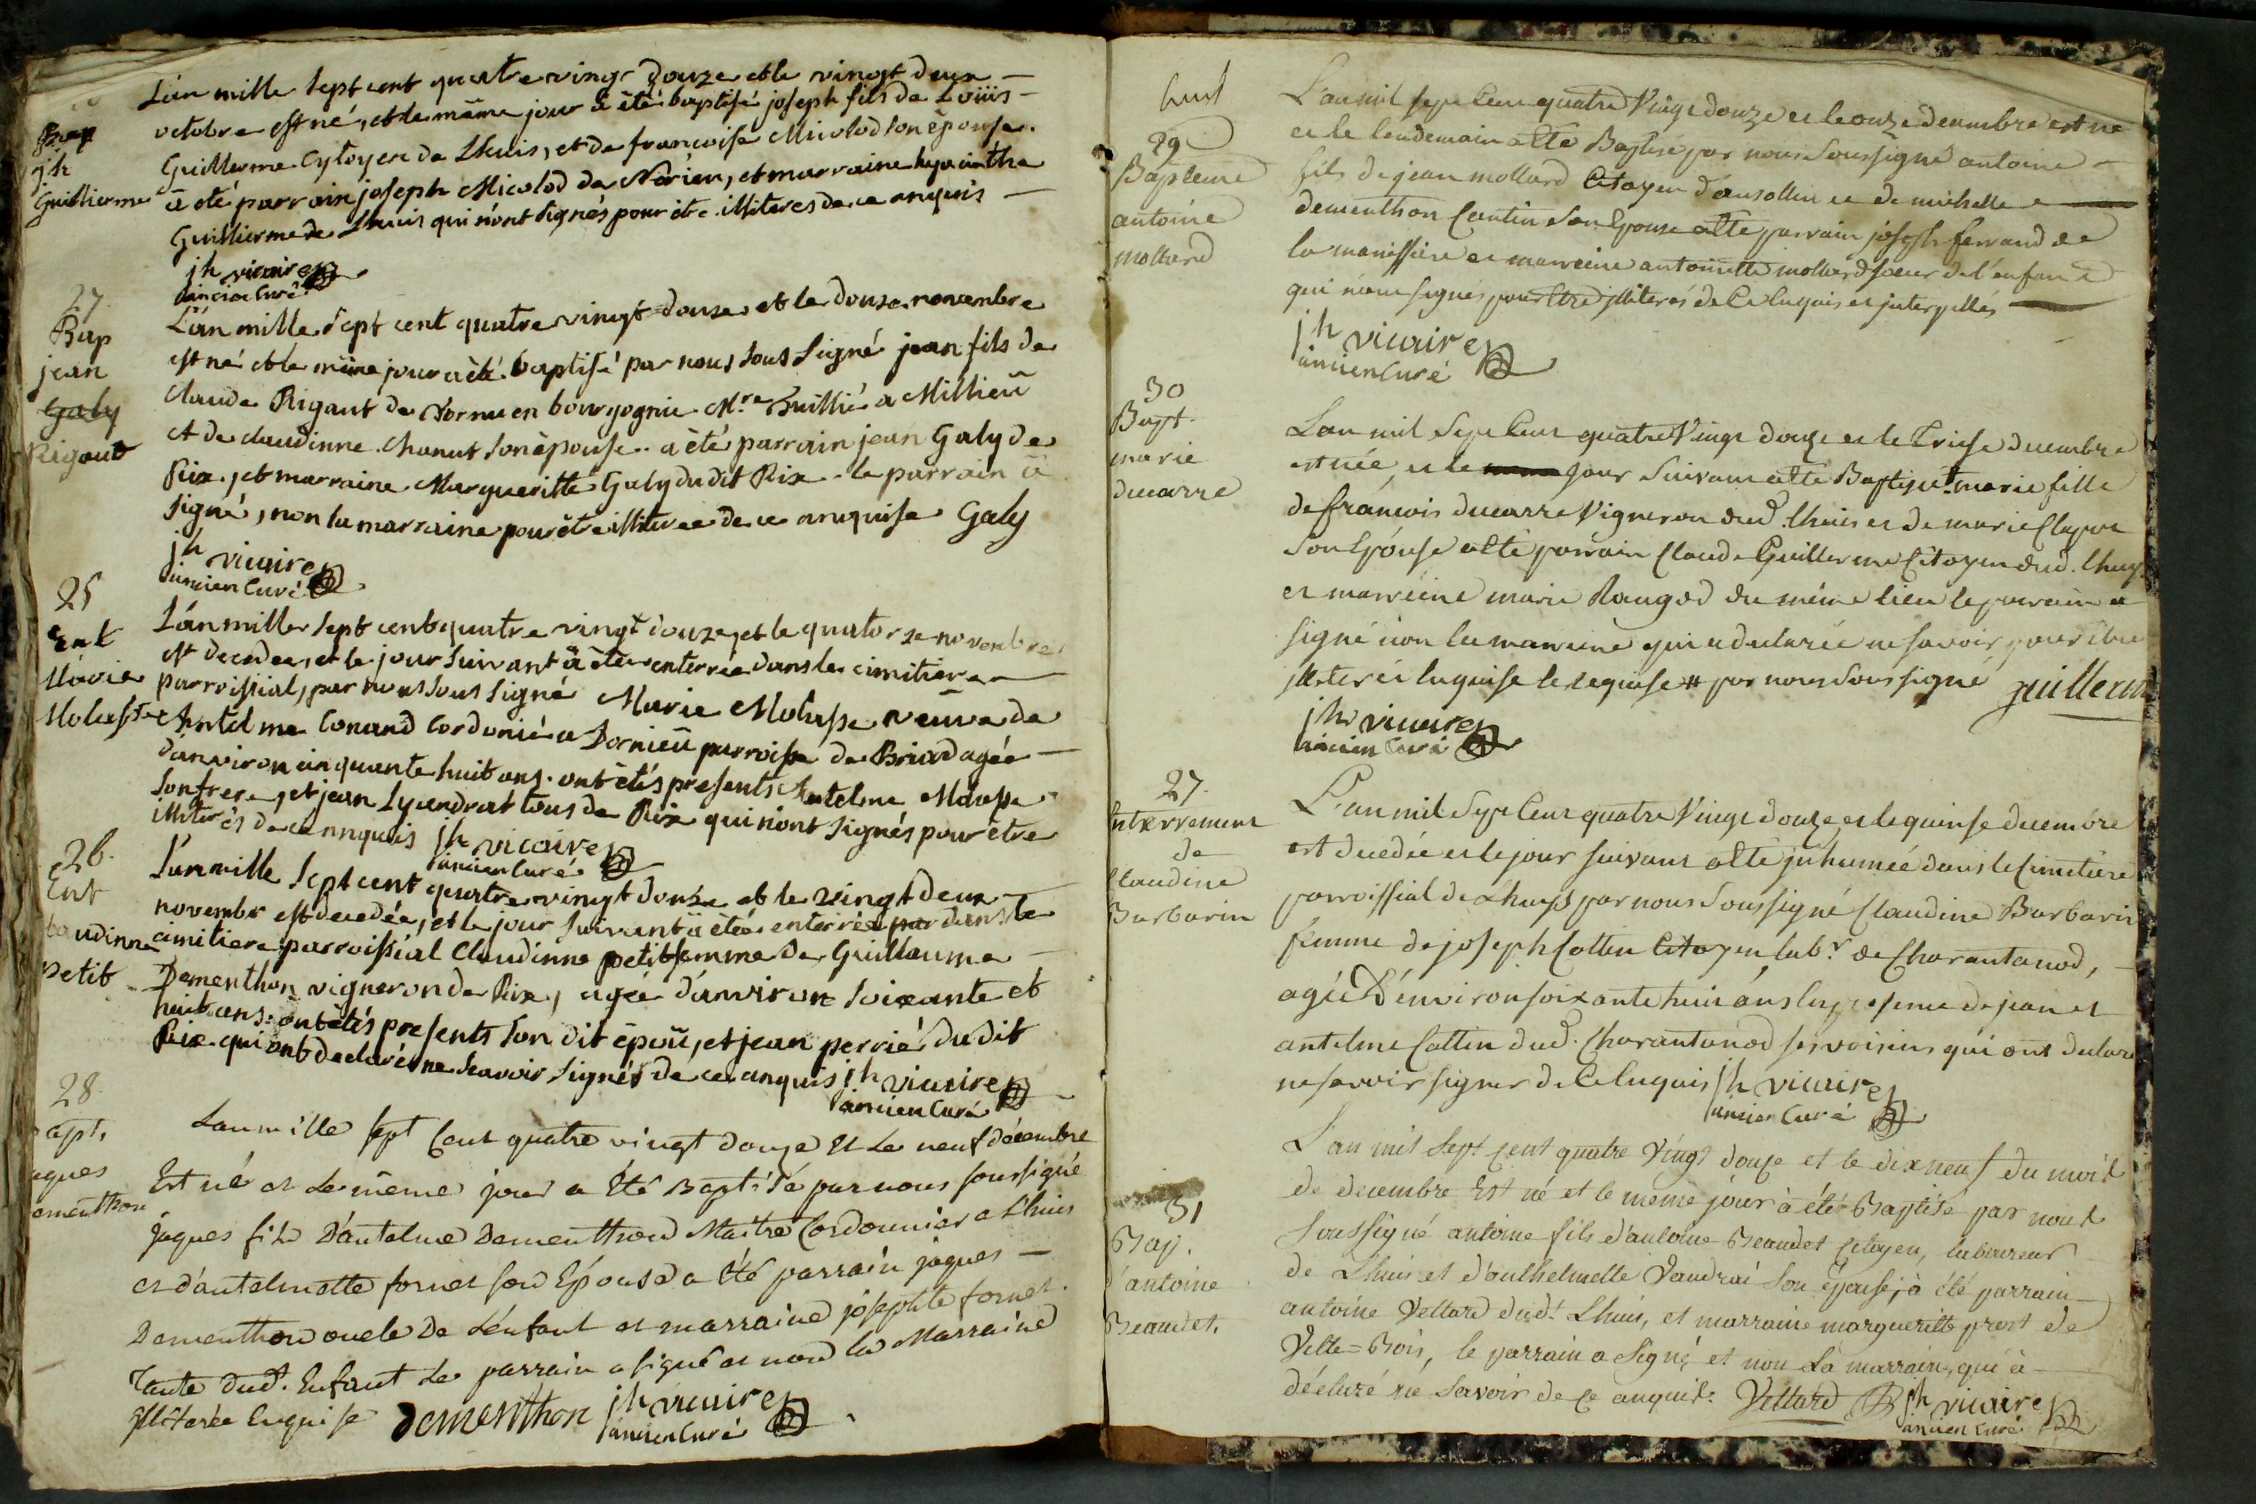 Bap
jh
Guillierme
L'an mille sept cent quatre vingt douze et le vingt deux
octobre est né, et le même jour a été baptisé joseph fils de Loüis
Guillerme Cytoyen de Lhuis, et de francoise Micolod son épouse.
a eté parrain joseph Micolod de Nérieu, et marraine hyacinthe
Guillierme de Lhuis qui n'ont signés pour être illiteres de ce anquis
jh vicaire
ancien Curé
27.
Bap
jean
Galy
Rigaud
L'an mille sept cent quatre vingt douze et le douse novembre
est né et le même jour a été baptisé par nous sous signé jean fils de
claude Rigaut de Tornu en bourgognie Mre Tuillié a Millieü
et de claudinne Chanut son épouse. a été parrain jean Galy de
Rix, et marraine Margueritte Galy du dit Rix. le parrain a
signé, non la marraine pour être illiteree de ce anquise Galy
jh vicaire
ancien Curé
25
Ent
Marie
Molasse
L'an mille sept cent quatre vingt douze, et le quatorze novembre
est decedee, et le jour suivant a êtée enterrée dans le cimitiere
parroissial, par nous sous signé Marie Molasse veuve de
Antelme Conand Cordonié a Dornieü parroisse de Briord agée
d'anviron cinquante huit ans. ont êtés presents Antelme Molasse
son frere, et jean Sycendrat tous de Rix qui n'ont signés pour être
illiterés de ce anquis jh vicaire
ancien Curé
26.
Ent
Claudinne
Petit
L'an mille sept cent quatre vingt douze et le vingt deux
novembr est decedée, et le jour suivant a êtée enterrée par dans le
cimitiere parroissial Claudinne petit femme de Guillaume
Dementhon vigneron de Rix, agée d'anviron soixante et
huit ans. ont étés presents son dit épou, et jean perrié du dit
Rix qui ont declarés ne scavoir signér de ce anquis jh vicaire
ancien Curé
28.
Bapt.
jaques
Dementhon
L'an mille sept cent quatre vingt douze et le neuf décembre
Est né et le même jour a Eté Baptisé par nous soussigné
jaques fils d'antelme Dementhon Maitre Cordonnier a Lhuis
et d'antelmette fornet son Epouse a Eté parrain jaques
Dementhon oncle de L'enfant et marraine josephte fornet
Tante dud. Enfant Le parrain a signé et non la Marraine
jllitérée Enquise dementhon jh vicaire
ancien Curé
huit
29
Bapteme
antoine
mollard
L'an mil sept cent quatre vingt douze et le onze decembre est né
et le lendemain a été Baptisé par nous soussigné antoine
fils de jean mollard Citoyen d'ansollin et de michelle
dementhon Cantin son Epouse a été parrain joseph ferrand de
la manissiere et marreine antoinette mollard soeur de l'enfant
qui n'ont signés pour Etre jlliterés de Ce luquis et interpellés
jh vicaire
ancien Curé
30
Bapt.
marie
ducarre
L'an mil sept cent quatre vingt douze et le treise decembre
est née et le jour suivant a été Baptisée marie fille
de francois ducarre vigneron dud. lhuis et de marie Claque
son Epouse a été parrain Claude Guillerme Citoyen dud. lhuys
et marreine marie Raugod du même lieu le parrain a
signé non la marreine qui a declarée ne savoir pour être
jlliterée luquise le requise # par nous soussigné guillerme
jh vicaire
ancien Curé
27.
Enterrement
de
Claudine
Barbarin
L'an mil sept cent quatre vingt douze et le quinse decembre
est decedée et le jour suivant a été jnhumée dans le Cimetiere
parroissial de Lhuys par nous soussigné Claudine Barbarin
femme de joseph Cottin Citoyen labr. de Charantonod,
agée d'environ soixante huit ans en presence de jean et
antelme Cottin dud. Charantonod ses voisins qui ont declaré
ne savoir signer de Ce luquis jh vicaire
ancien Curé
31
Bap.
d'antoine
Beaudet.
L'an mil sept cent quatre vingt douze et le dix neuf du mois
de decembre Est né et le meme jour à été Baptisé par nous
soussigné antoine fils d'antoine Beaudet citoyen, laboureur
de Lhuis et d'anthelmette Vaudrai son épouse, à été parrain
antoine Vettard dudt. Lhuis, et marraine margueritte prost de
Velte=Bois, le parrain a signé et non La marraine, qui à
déclaré ne savoir de ce anquis. Vettard jh vicaire
ancien Curé